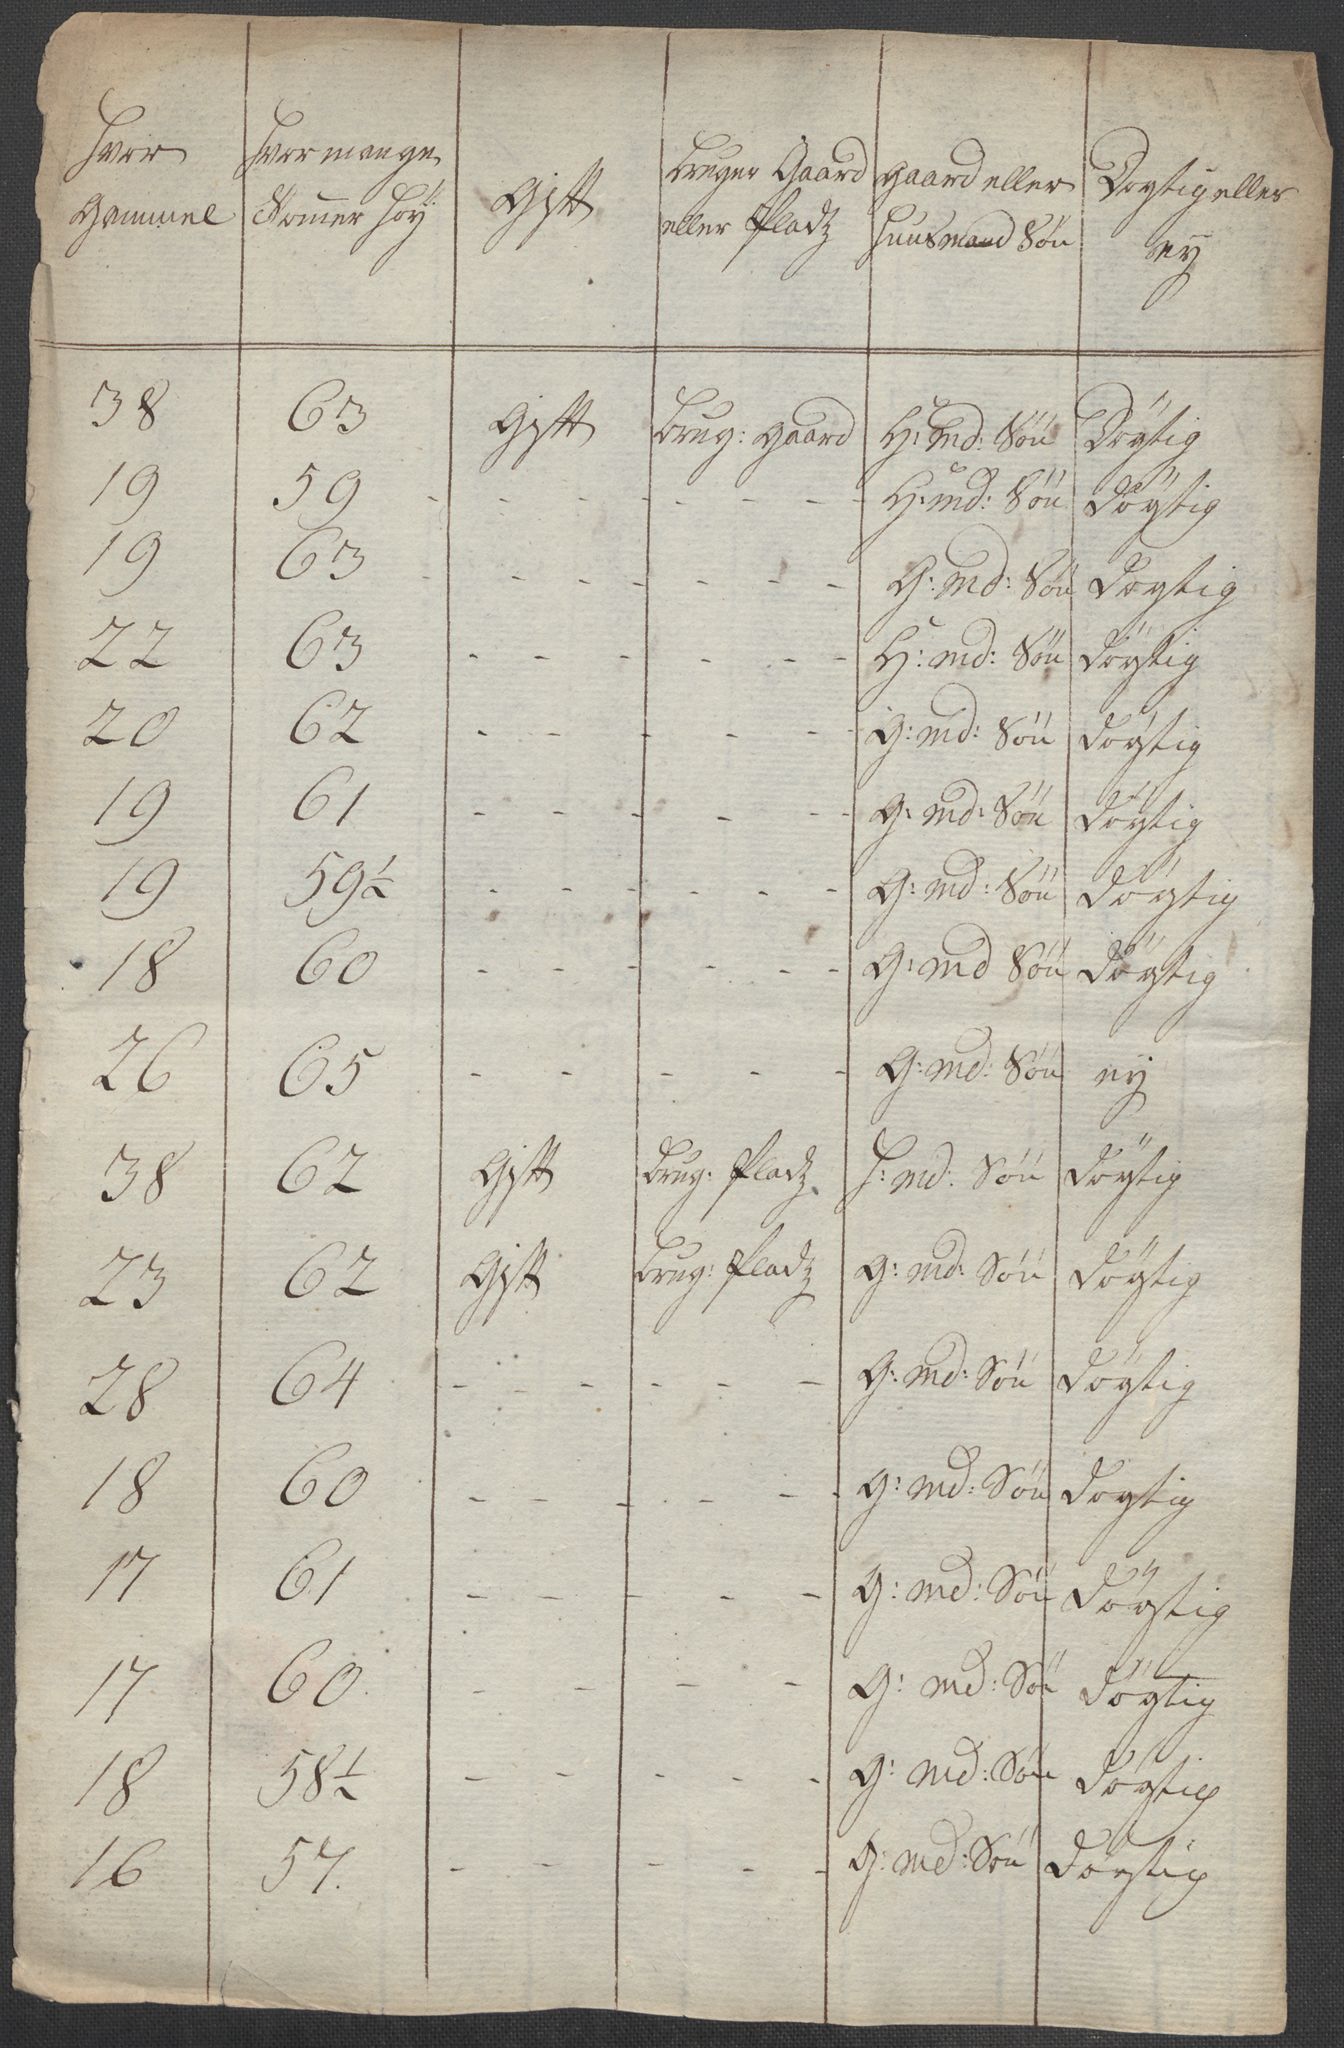 Hvor Gammel | Hvor mange Tomer Höÿ | Gift | bruger Gaard eller Pladz | gaard eller Huusmand Sön | Dogtig eller eÿ
38 | 63 | Gift | brug: gaard | H: md: Sön | Dögtig
19 | 59 | - | - | H: md: Sön | dögtig
19 | 63 | - | - | G: md: Sön | dogtig
22 | 63 | - | - | H: md: Sön | dögtig
20 | 62 | - | - | G: md: Sön | dögtig
19 | 61 | - | - | G: md: Sön | dögtig
19 | 59½ | - | - | G: md: Sön | dögtig
18 | 60 | - | - | G: md Sön | dögtig
26 | 65 | - | - | G: md: Sön | eÿ
38 | 62 | Gift | brug: Pladz | H: md: Sön | dögtig
23 | 62 | Gift | brug: Pladz | G: md: Sön | dögtig
28 | 64 | - | - | G: md: Sön | dögtig
18 | 60 | - | - | G: md: Sön | dogtig
17 | 61 | - | - | G: md: Sön | dögtig
17 | 60 | - | - | G: md: Sön | dögtig
18 | 58½ | - | - | G: md: Sön | dögtig
16 | 57. | - | - | G: md: Sön | dögtig